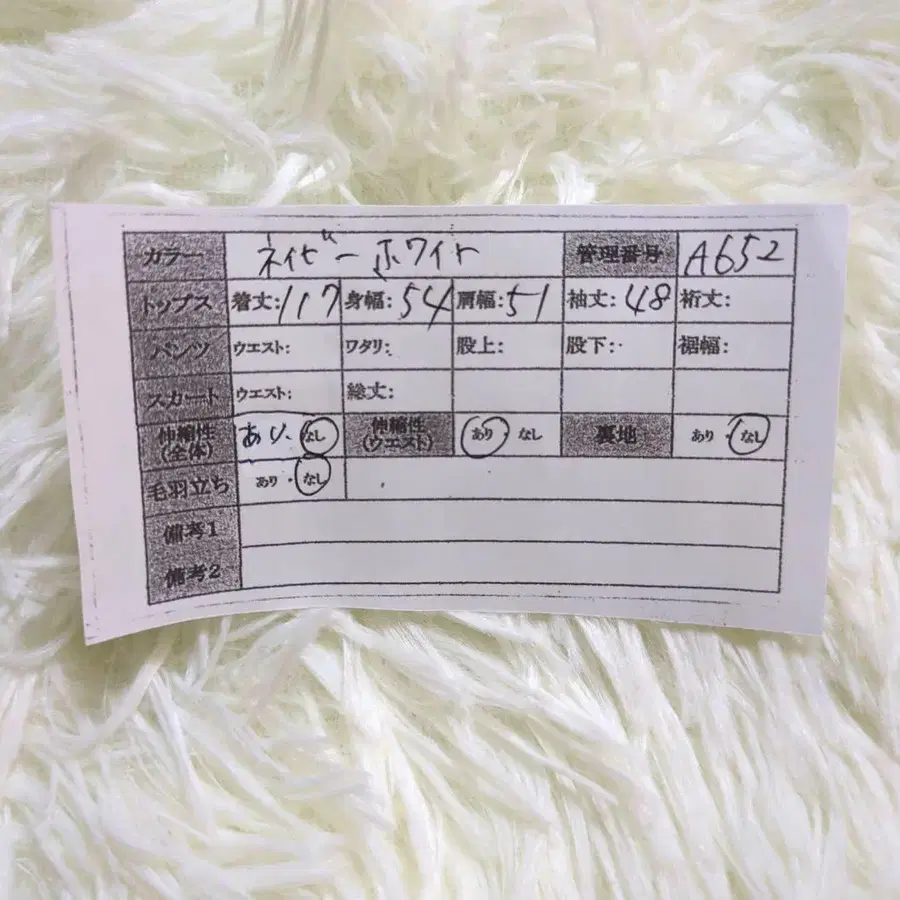 カラー ネイビー ホワイト 管理番号 A652
トップス 着丈:117 身幅:54 肩幅:51 袖丈:48 裄丈:
パンツ ウエスト: ワタリ: 股上: 股下: 裾幅:
スカート ウエスト: 総丈:
伸縮性(全体) あり・なし 伸縮性(ウエスト) あり・なし 裏地 あり・なし
毛羽立ち あり・なし
備考1
備考2